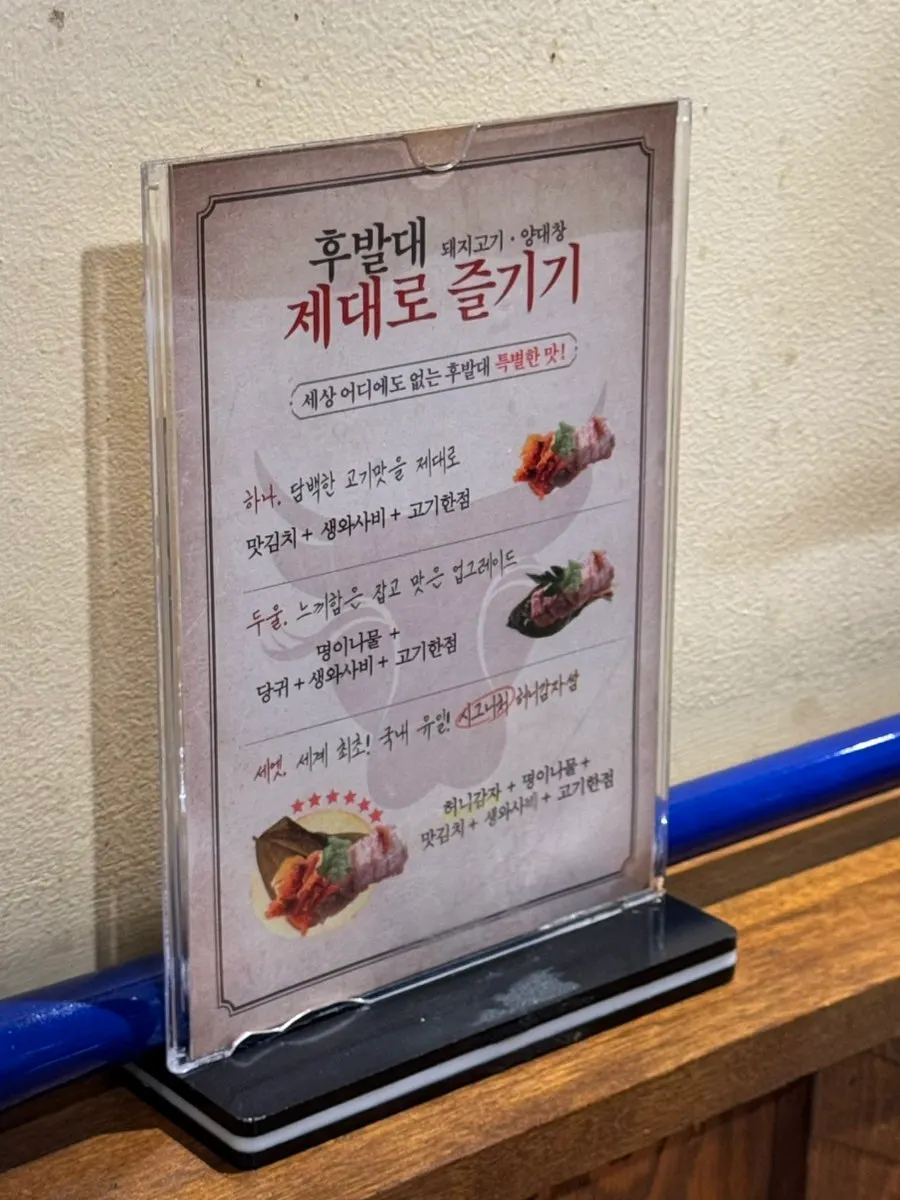 후발대 돼지고기 · 양대창
제대로 즐기기
세상 어디에도 없는 후발대 특별한 맛!
하나. 담백한 고기맛을 제대로
맛김치 + 생와사비 + 고기한점
두울. 느끼함은 잡고 맛은 업그레이드
명이나물 +
당귀 + 생와사비 + 고기한점
세엣. 세계 최초! 국내 유일! 시그니처 허니감자쌈
허니감자 + 명이나물 +
맛김치 + 생와사비 + 고기한점